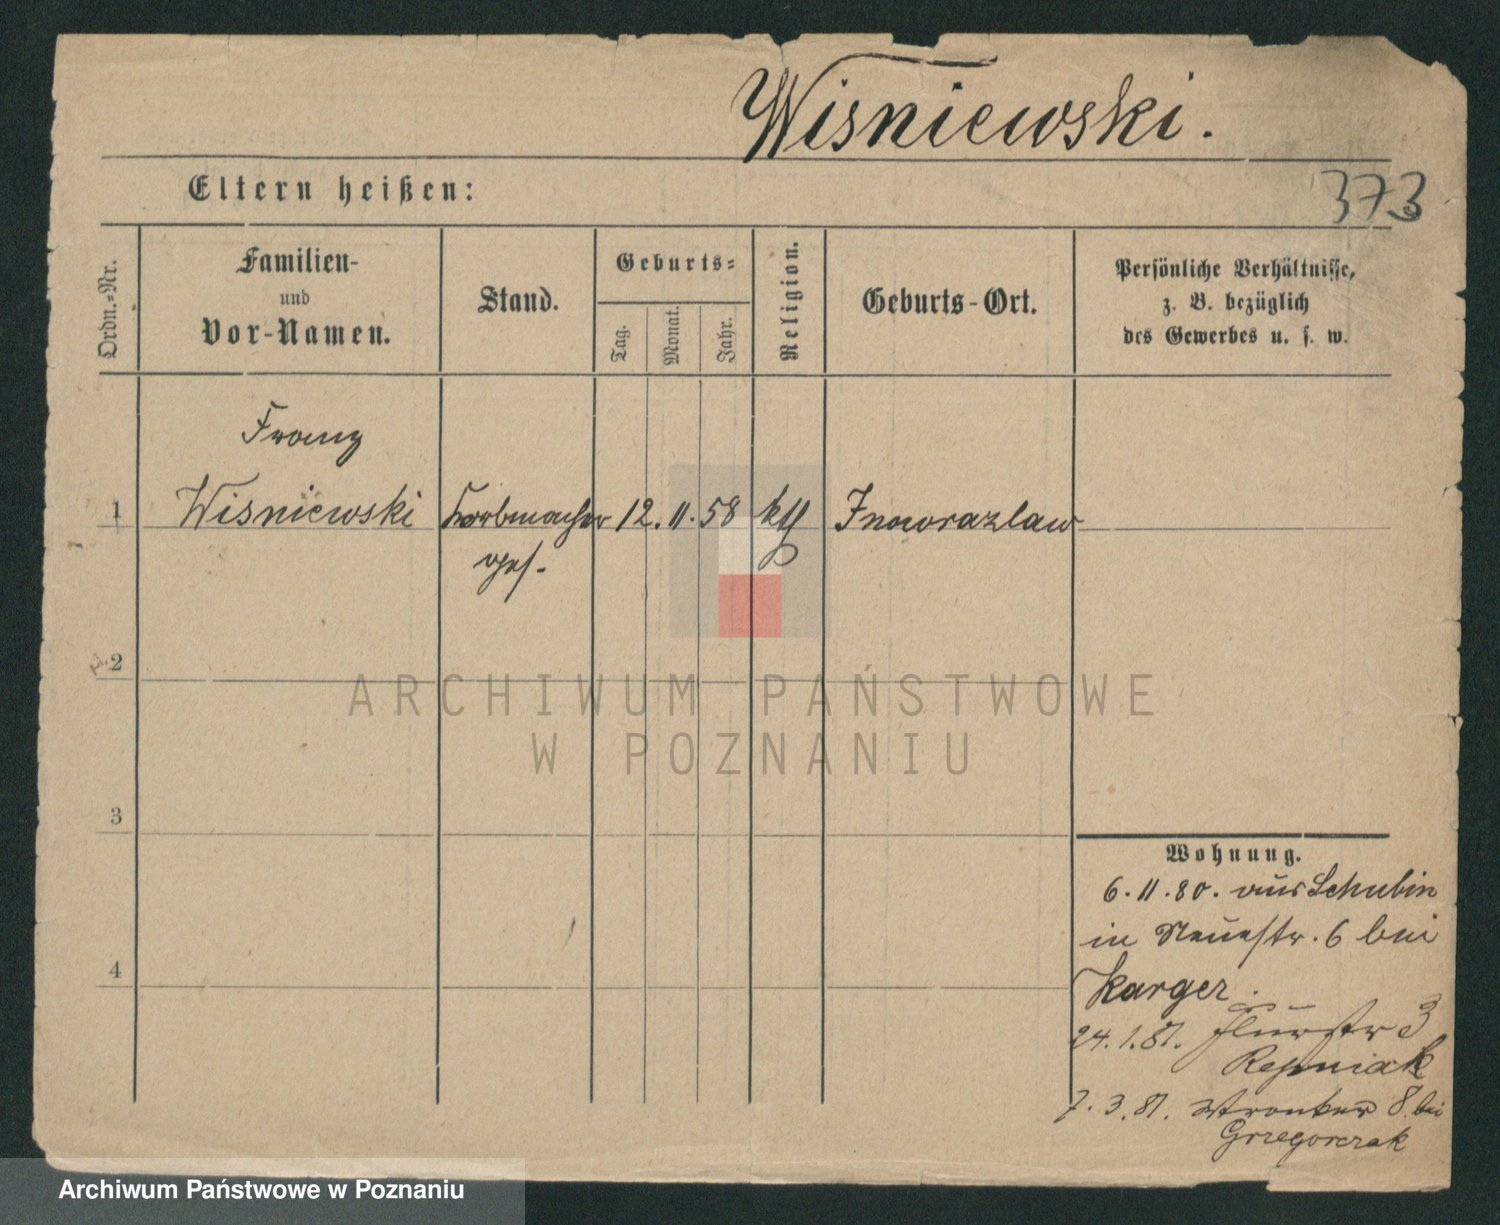 Wisniewski.
373
Eltern heißen:
Ordn.-Nr.
Familien-
und
Vor-Namen.
Stand.
Geburts-
Tag.
Monat.
Jahr.
Religion.
Geburts-Ort.
Persönliche Verhältnisse,
z. B. bezüglich
des Gewerbes u. s. w.
Franz
1 Wisniewski Korbmacher 12. 11. 58 kth Inowrazlaw
ges.
2
3
4
ARCHIWUM PAŃSTWOWE
W POZNANIU
Wohnung.
6. 11. 80. aus Schubin
in Neuestr. 6 bei
Karger.
24. 1. 81. Flurstr 3
7. 3. 81. Wronker 8. bei
Grzegorczak
Archiwum Państwowe w Poznaniu